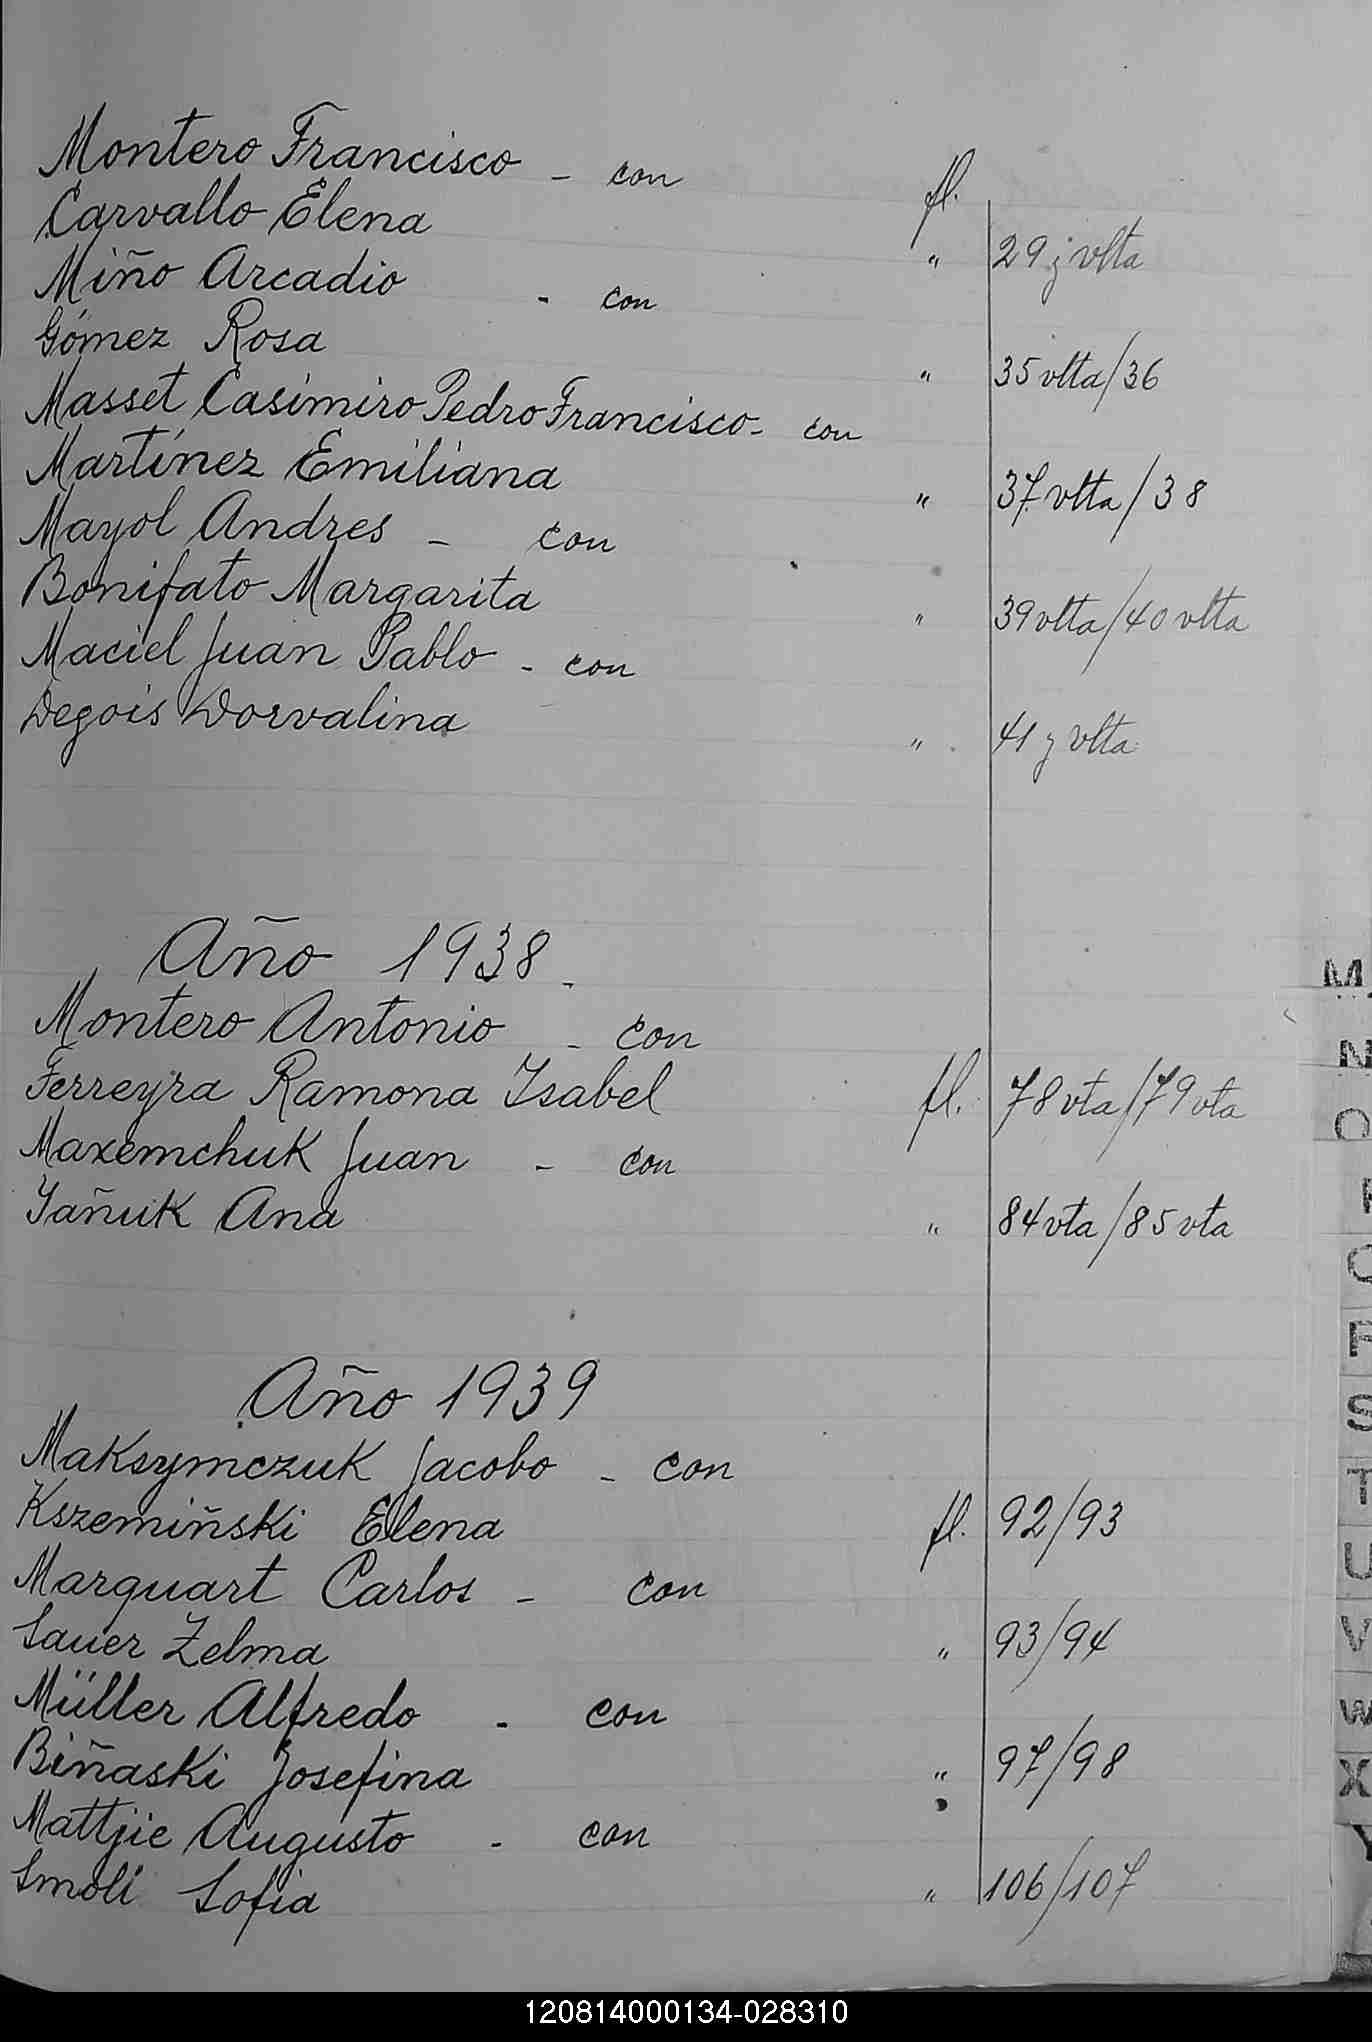 Montero Francisco - con fl.
Carvallo Elena " 29 y vlta
Miño Arcadio - con
Gómez Rosa " 35 vlta/36
Masset Casimiro Pedro Francisco - con
Martínez Emiliana " 37 vlta/38
Mayol Andres - con
Bonifato Margarita " 39 vlta/40 vlta
Maciel Juan Pablo - con
Degois Dorvalina " 41 y vlta
Año 1938 -
Montero Antonio - con
Ferreyra Ramona Ysabel fl. 78 vta/79 vta
Maxemchuk Juan - con
Yañuk Ana " 84 vta/85 vta
Año 1939
Maksymczuk Jacobo - con
Kszemiñski Elena fl. 92/93
Marquart Carlos - con
Sauer Zelma " 93/94
Müller Alfredo - con
Biñaski Josefina " 97/98
Mattjie Augusto - con
Smoli Sofia " 106/107
M
N
O
P
Q
R
S
T
U
V
W
X
Y
120814000134-028310